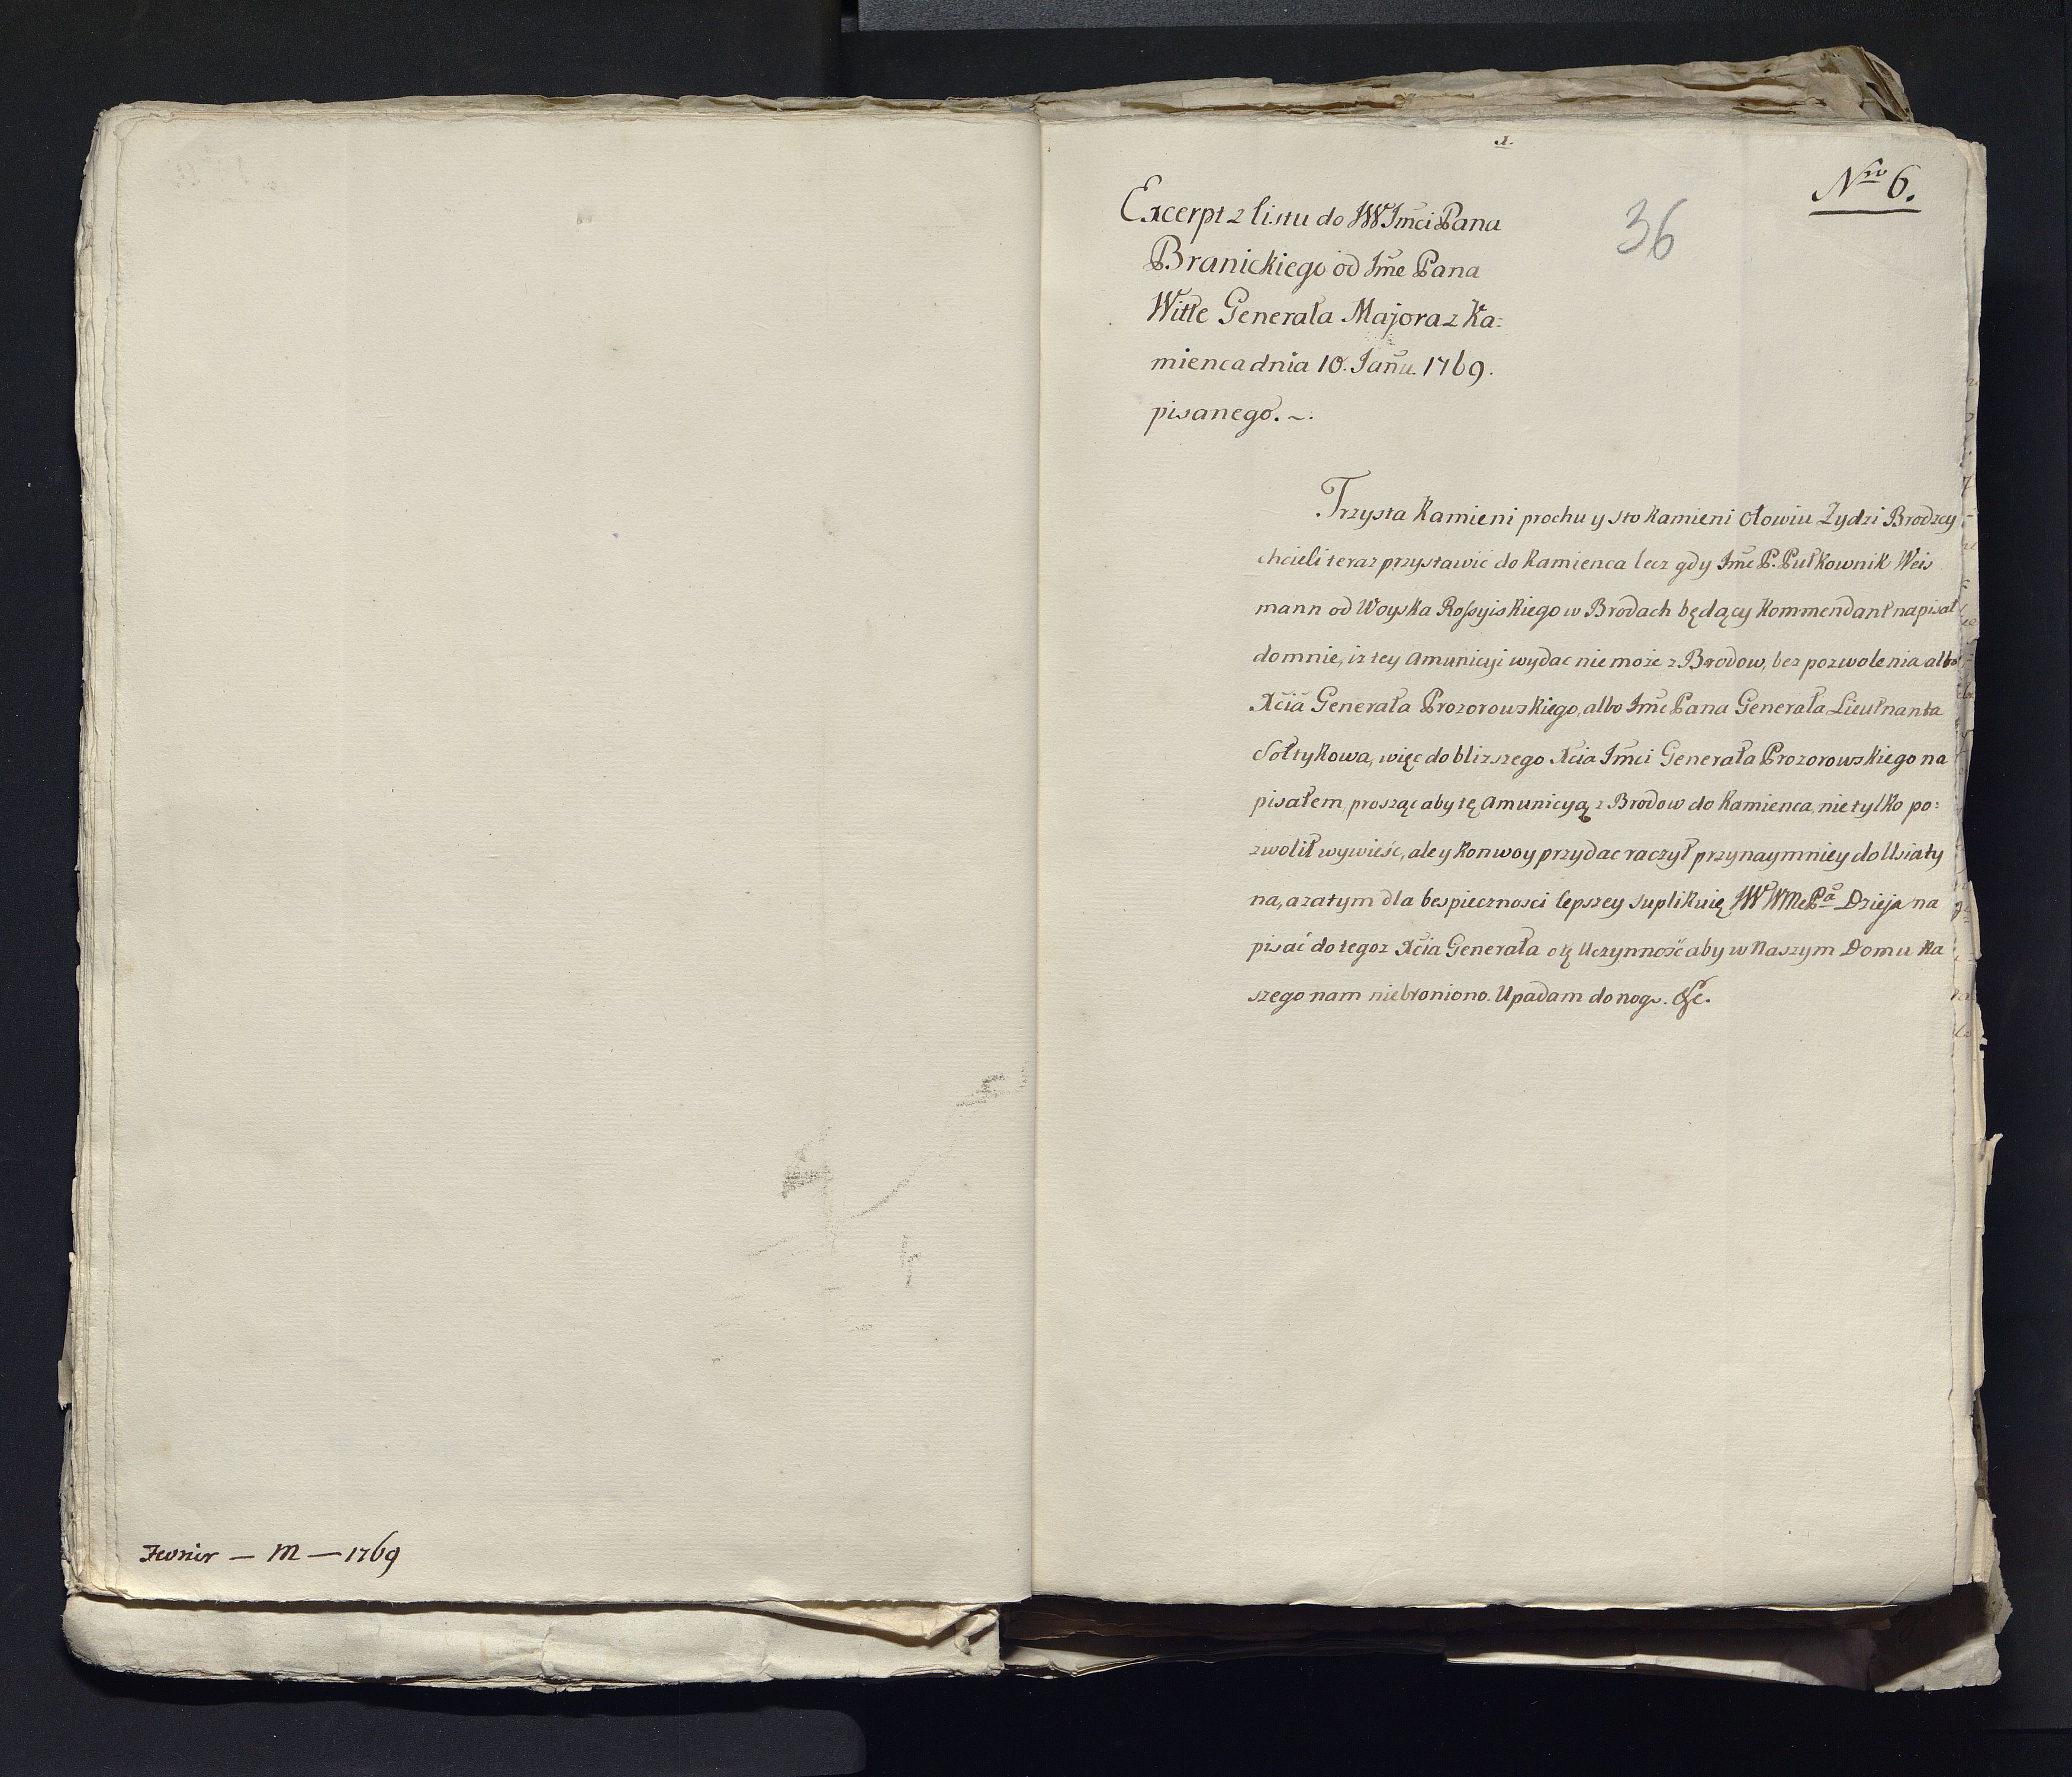 Fevrier — M — 1769
1.
Nro 6.
36
Excerpt z listu do JW Jmći Pana
Branickiego od Jmć Pana
Witte Generała Majora z Ka:
mienca dnia 10. Janũ. 1769.
pisanego. ~.
Trzysta Kamieni prochu y sto Kamieni Ołowiu Zydzi Brodzcy
chcieli teraz przystawić do Kamienca lecz gdy Jmć P. Pułkownik Weis
mann od Woyska Rossyiskiego w Brodach będący Kommendant napisał
do mnie, iz tey Amunicyi wydac nie może z Brodow, bez pozwolenia albo
Xcia Generała Prozorowskiego, albo Jmć Pana Generała Lieutnanta
Sołtykowa, więc do blizszego Xcia Jmci Generała Prozorowskiego na
pisałem, prosząc aby tę Amunicyą z Brodow do Kamienca, nie tylko po:
zwolił wywieść, ale y Konwoy przydac raczył przynaymniey do Usiaty
na, a zatym dla bespiecznosci lepszey suplikuię JW WMć Pa Dzieja na
pisać do tegoz Xcia Generała o tę Uczynność aby w Naszym Domu Na
szego nam niebroniono. Upadam do nog. &c.